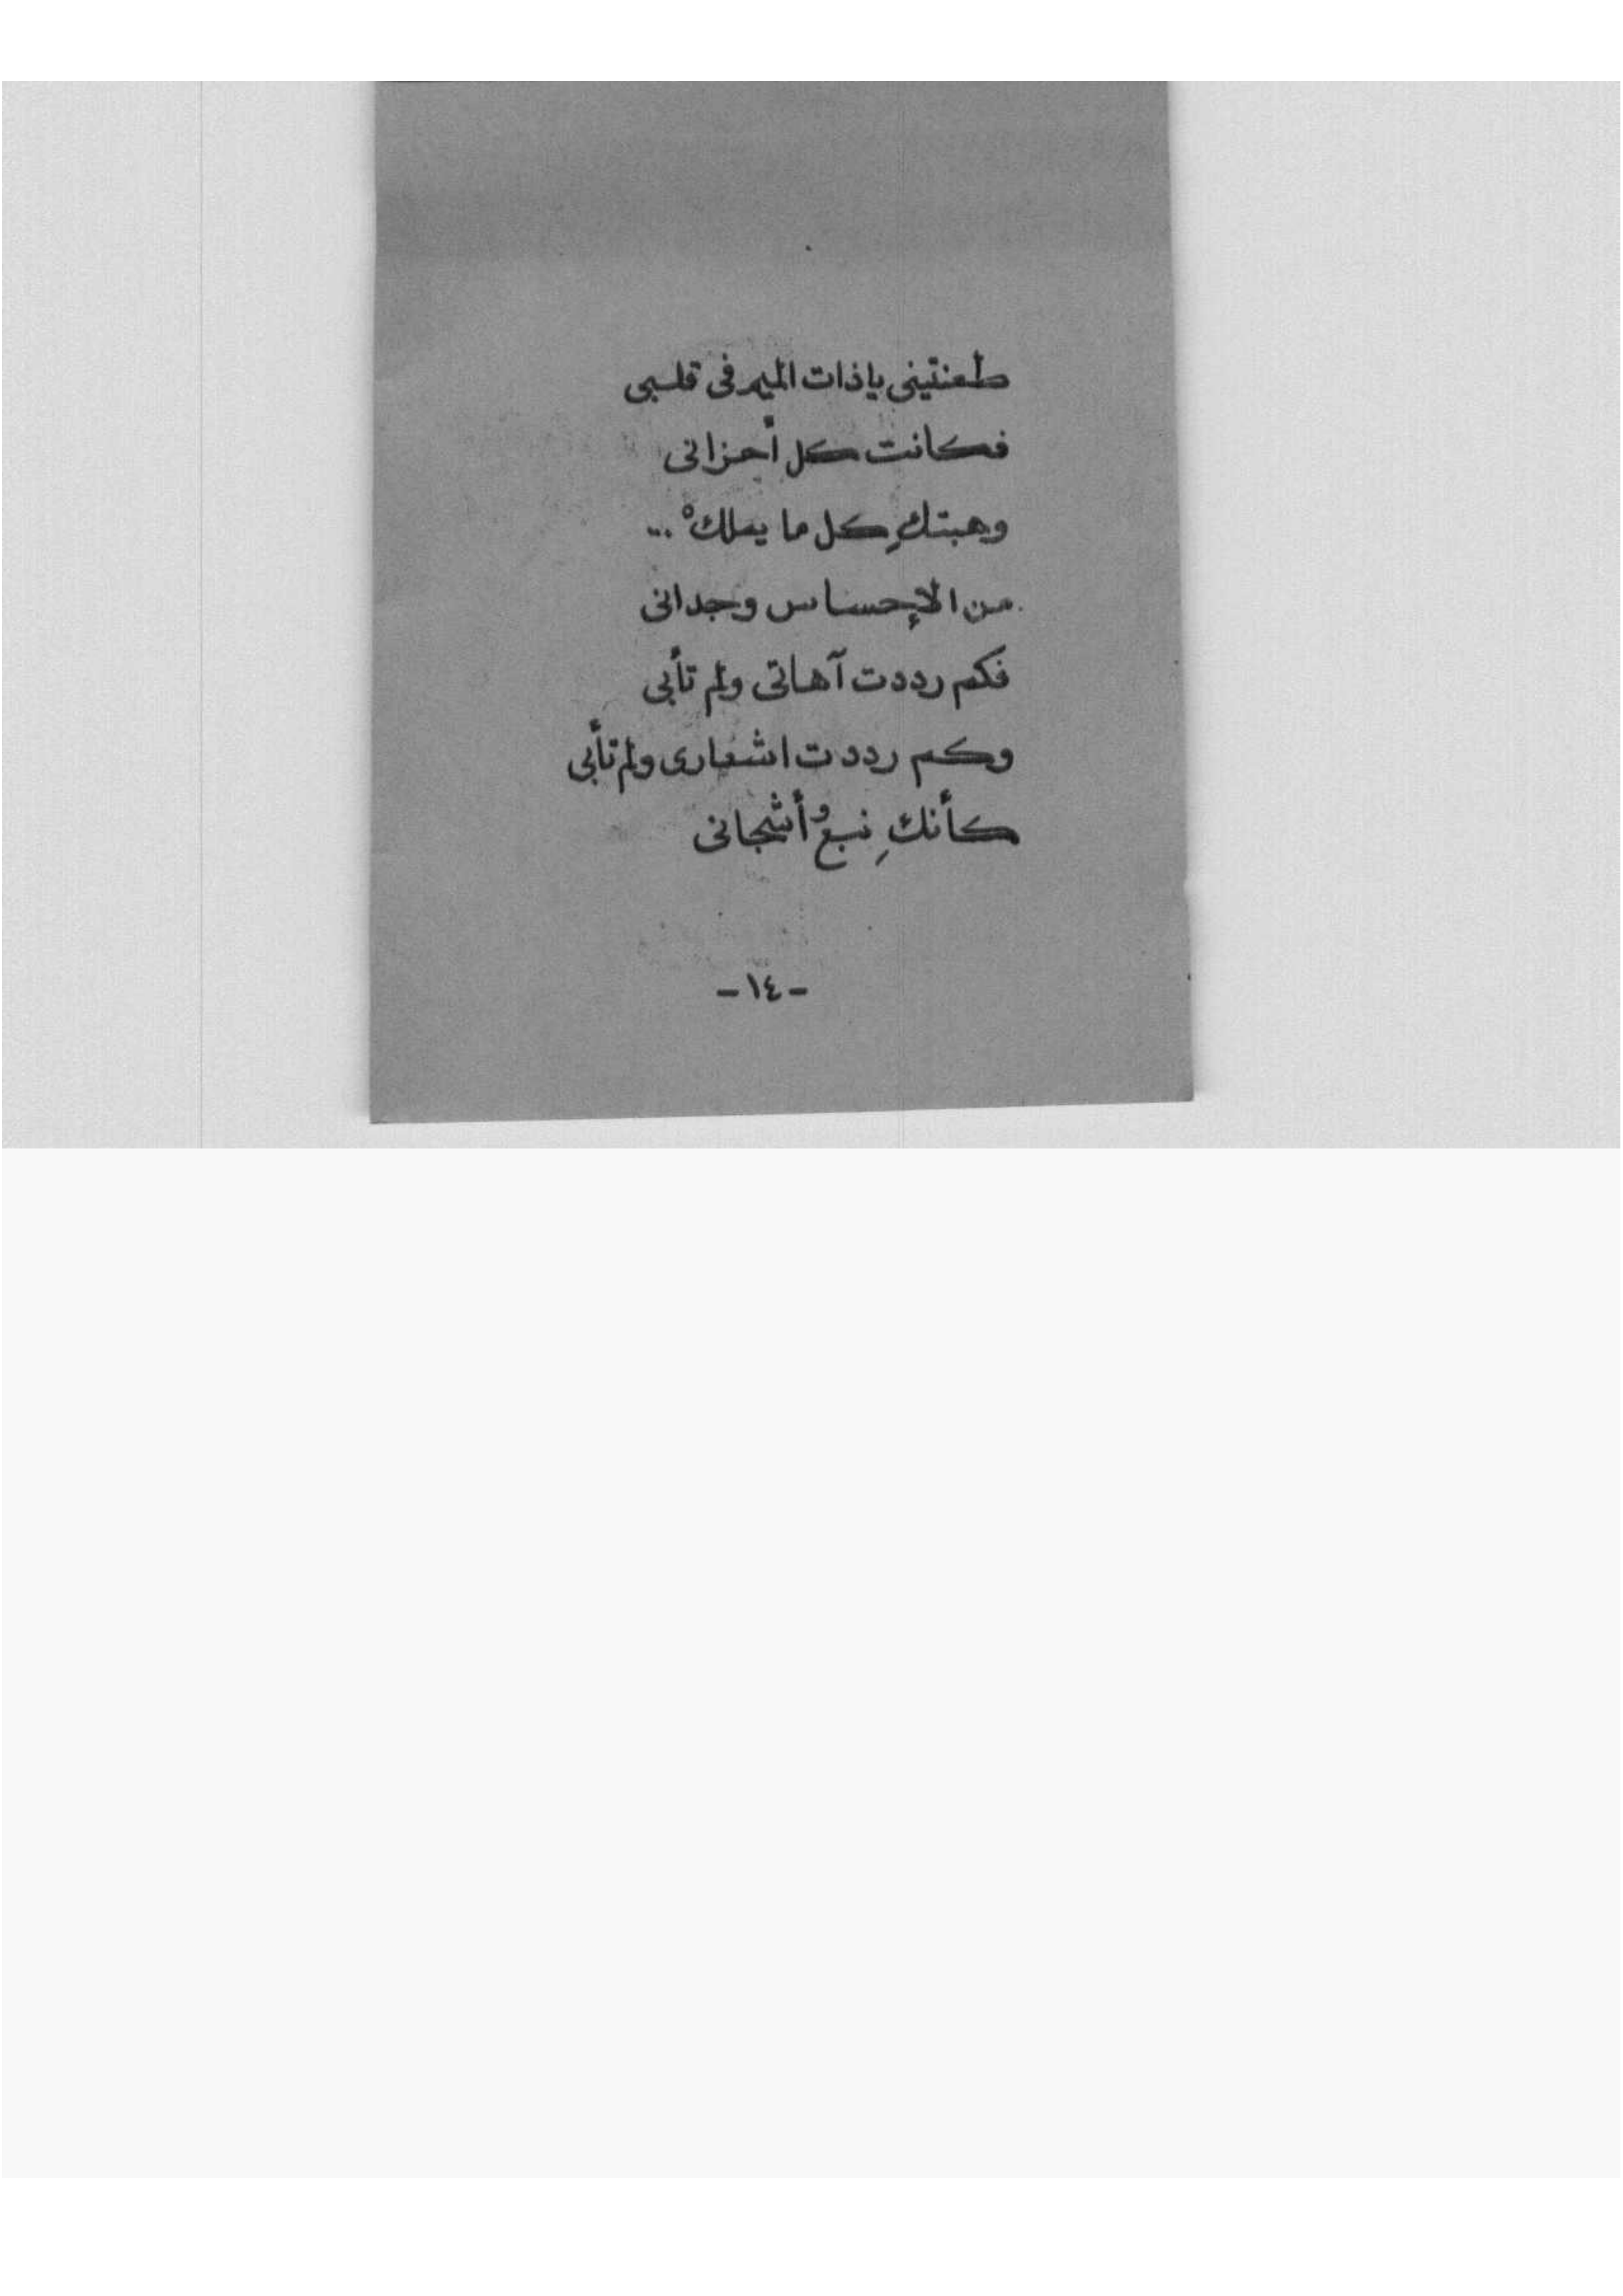 طعنتينى ياذات الميم فى قلبى
فكانت كل أحزانى
وهبتكِ كل ما يملكْ ...
من الإحساس وجدانى
فكم رددت آهاتى ولم تأبى
وكم رددت اشعارى ولم تأبى
كأنكِ نبعُ أشجانى
- ١٤ -